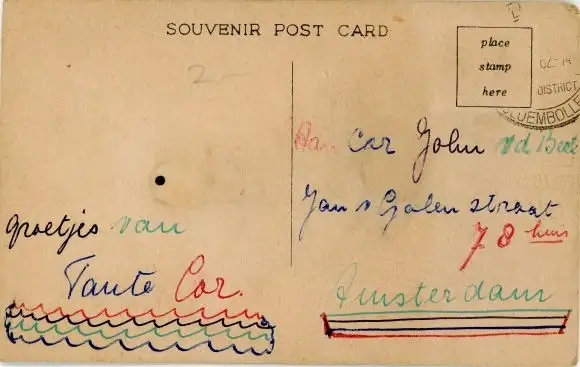 SOUVENIR POST CARD
place
stamp
here
DISTRICT
2-
Aan Cor John v d Beek
Jan v Galen straat
78 huis
Amsterdam
groetjes van
Tante Cor.